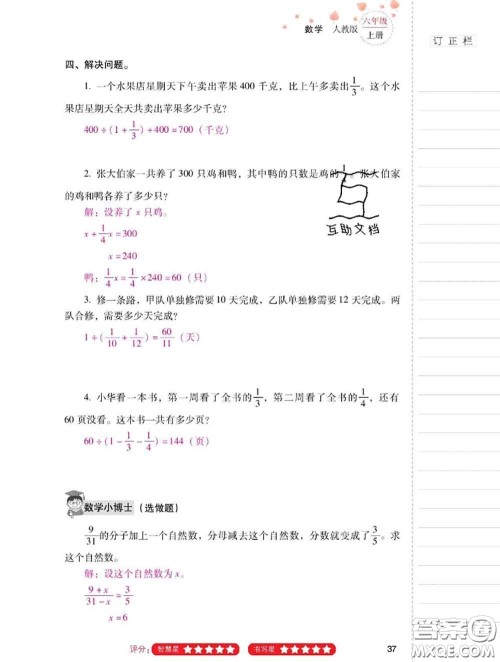 数学 人教版 六年级上册
订正栏
四、解决问题。
1. 一个水果店星期天下午卖出苹果 400 千克，比上午多卖出1/3。这个水
果店星期天全天共卖出苹果多少千克？
400÷(1+1/3)+400=700（千克）
2. 张大伯家一共养了 300 只鸡和鸭，其中鸭的只数是鸡的 。张大伯家
的鸡和鸭各养了多少只？
解：设养了 x 只鸡。
x+1/4x=300
x=240
鸭：1/4x=1/4×240=60（只）
互助文档
3. 修一条路，甲队单独修需要 10 天完成，乙队单独修需要 12 天完成。两
队合修，需要多少天完成？
1÷(1/10+1/12)=60/11（天）
4. 小华看一本书，第一周看了全书的1/3，第二周看了全书的1/4，还有
60 页没看。这本书一共有多少页？
60÷(1-1/3-1/4)=144（页）
数学小博士（选做题）
9/31的分子加上一个自然数，分母减去这个自然数，分数就变成了3/5。求
这个自然数。
解：设这个自然数为 x。
(9+x)/(31-x)=3/5
x=6
评分：智慧星 ★★★★★ 书写星 ★★★★★
37
答案圈
MXQE.COM